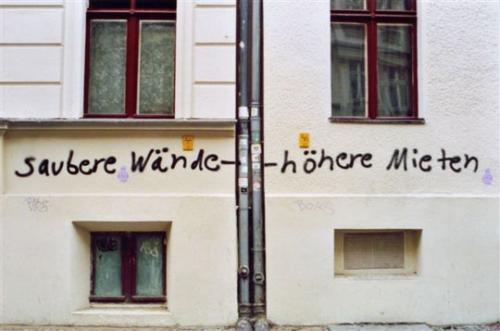 saubere Wände - - höhere Mieten